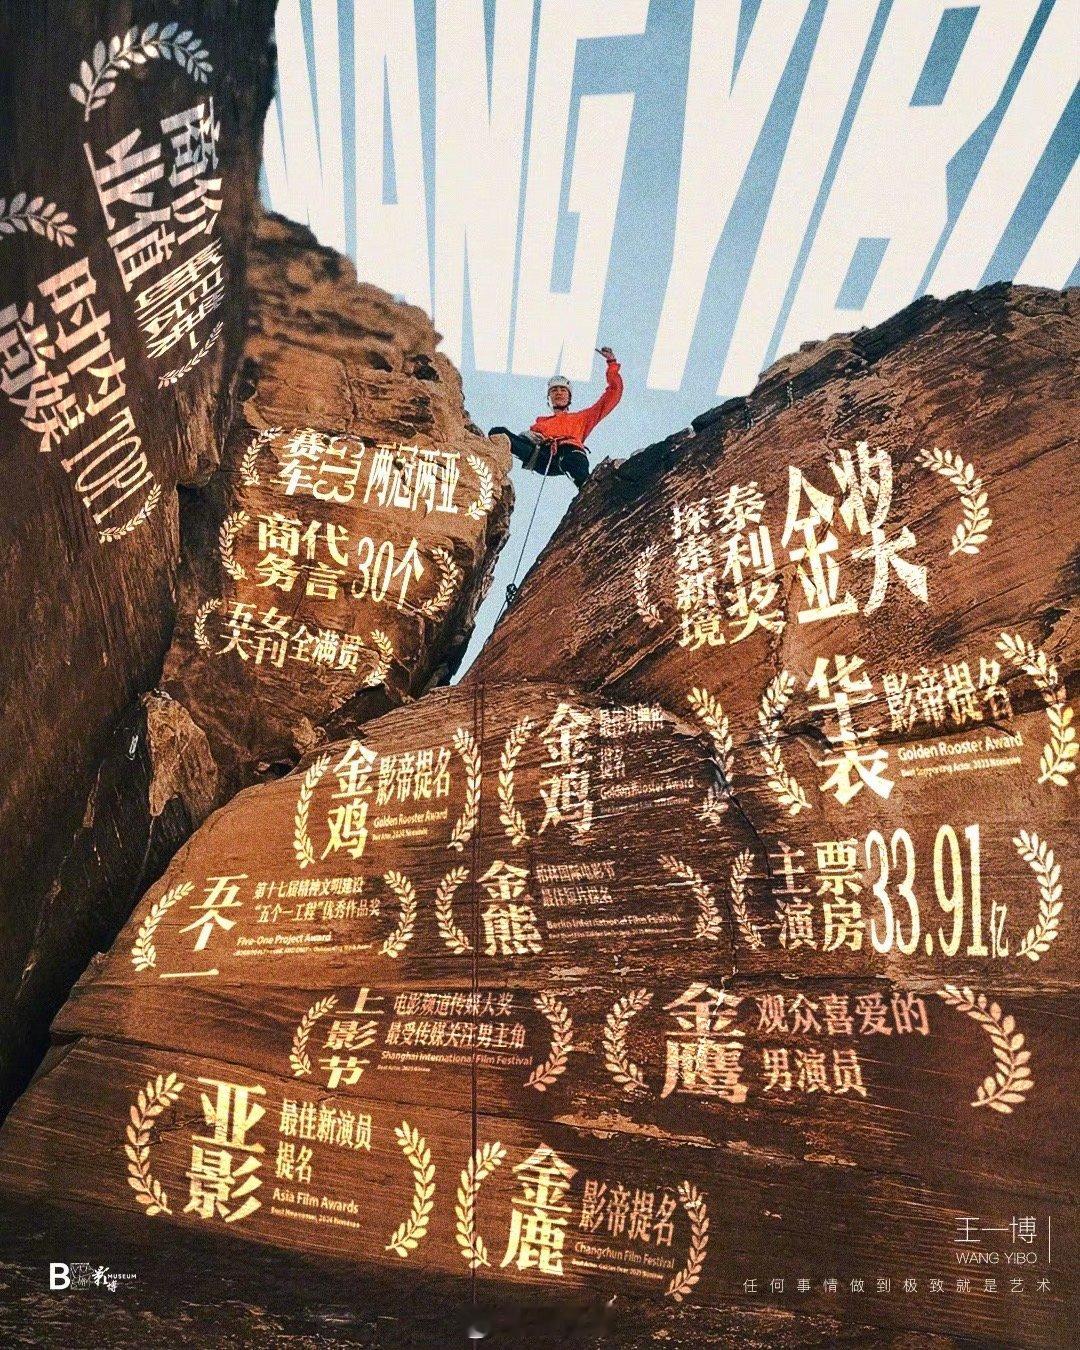 WANG YIBO
商业
价值
时尚
内娱
TOP1
赛车
GT3
两冠两亚
商务
代言
30个
五大
女刊
全满贯
探索新境
泰利奖
金奖
华表
影帝提名
Golden Rooster Award
金鸡
影帝提名
Golden Rooster Award
金鸡
提名
Golden Rooster Award
五个一
第十七届精神文明建设
"五个一工程"优秀作品奖
Five-One Project Award
金熊
柏林国际电影节
最佳短片提名
Berlin International Film Festival
主演
票房
33.91亿
上影节
电影频道传媒大奖
最受传媒关注男主角
Shanghai International Film Festival
金鹰
观众喜爱的
男演员
亚影
最佳新演员
提名
Asia Film Awards
金鹿
影帝提名
Changchun Film Festival
王一博
WANG YIBO
任何事情做到极致就是艺术
B
影博
MUSEUM